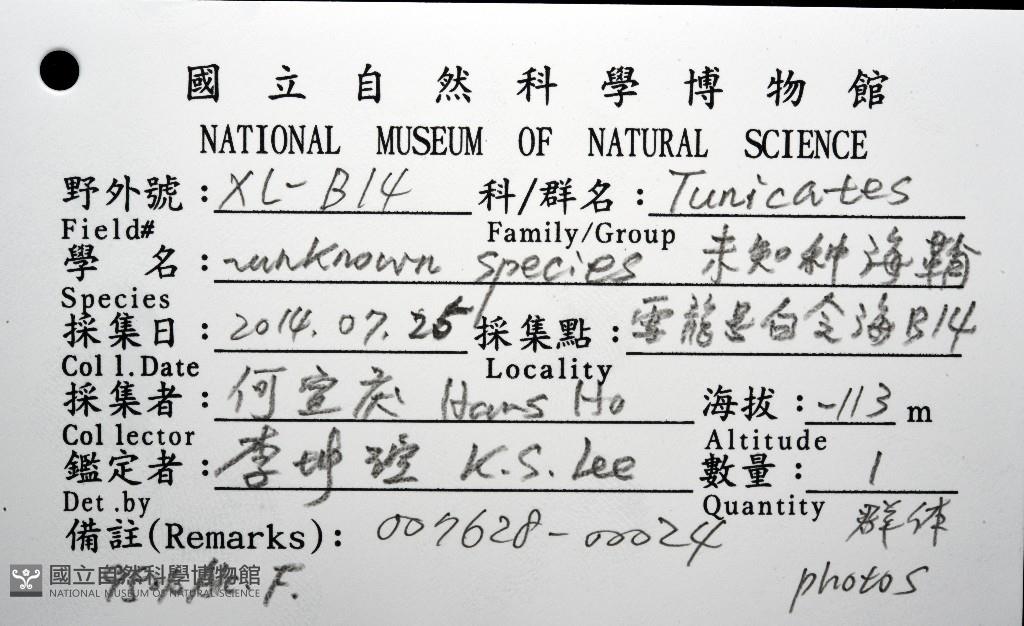 國立自然科學博物館
NATIONAL MUSEUM OF NATURAL SCIENCE
野外號：XL-B14 科/群名：Tunicates
Field# Family/Group
學 名：unknown species 未知种海鞘
Species
採集日：2014.07.25 採集點：雪龍是白令海B14
Coll.Date Locality
採集者：何宣庆 Hans Ho 海拔：-113 m
Collector Altitude
鑑定者：李坤瑄 K.S. Lee 數量：1
Det.by Quantity 群体
備註(Remarks)：007628-00024
photos
F.
國立自然科學博物館
NATIONAL MUSEUM OF NATURAL SCIENCE